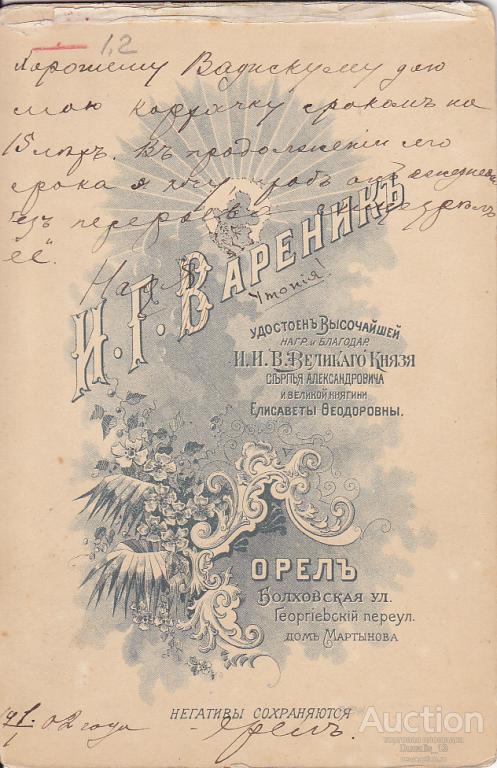 1,2
Хорошему Вадискуму даю
мою карточку срокомъ на
15 лѣтъ. Въ продолженіи его
срока я хочу чтобъ онъ ежедневно
безъ перерыва
ее".
Надя
Утопія!
И. Г. ВАРЕНИКЪ
УДОСТОЕНЪ ВЫСОЧАЙШЕЙ
НАГР. И БЛАГОДАР.
И. И. В. ВЕЛИКАГО КНЯЗЯ
СЕРГѢЯ АЛЕКСАНДРОВИЧА
И ВЕЛИКОЙ КНЯГИНИ
ЕЛИСАВЕТЫ ѲЕОДОРОВНЫ.
ОРЕЛЪ
БОЛХОВСКАЯ УЛ.
ГЕОРГІЕВСКІЙ ПЕРЕУЛ.
ДОМЪ МАРТЫНОВА
НЕГАТИВЫ СОХРАНЯЮТСЯ
02 года Орелъ.
Auction
торговая площадка
Duealis_13